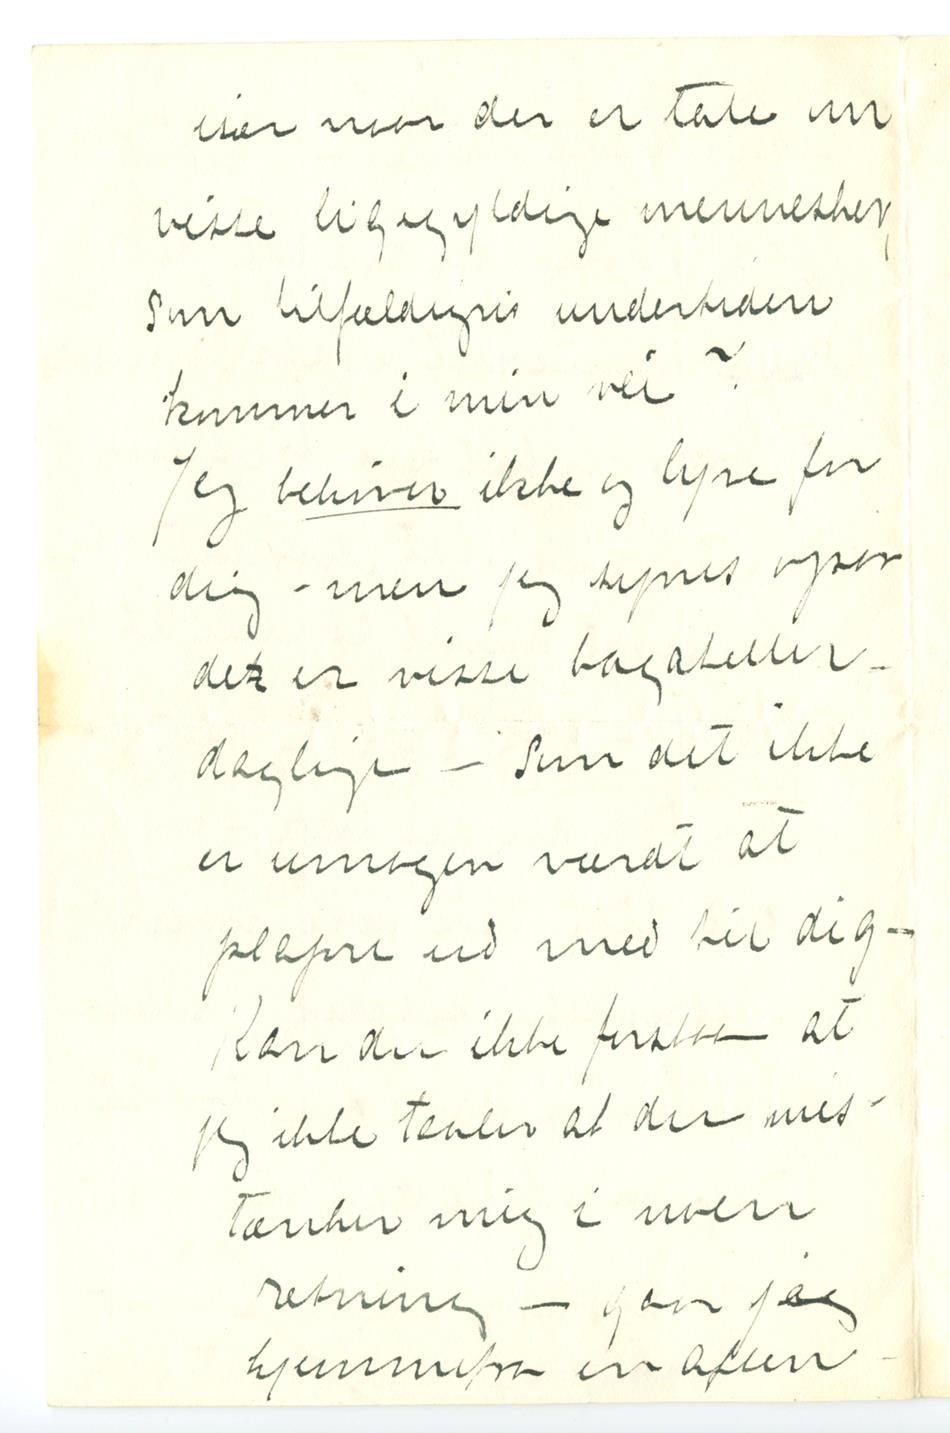 især naar der er tale om
visse ligegyldige mennesker,
som tilfældigvis undertiden
kommer i min vei ?
Jeg behøver ikke og lyve for
dig - men jeg synes ogsaa
det er visse bagateller -
daglige - som det ikke
er umagen værdt at
plapre ud med til dig -
Kan du ikke forstaa at
jeg ikke taaler at du mis-
tænker mig i noen
retning - gaar jeg
hjemmefra en aften -